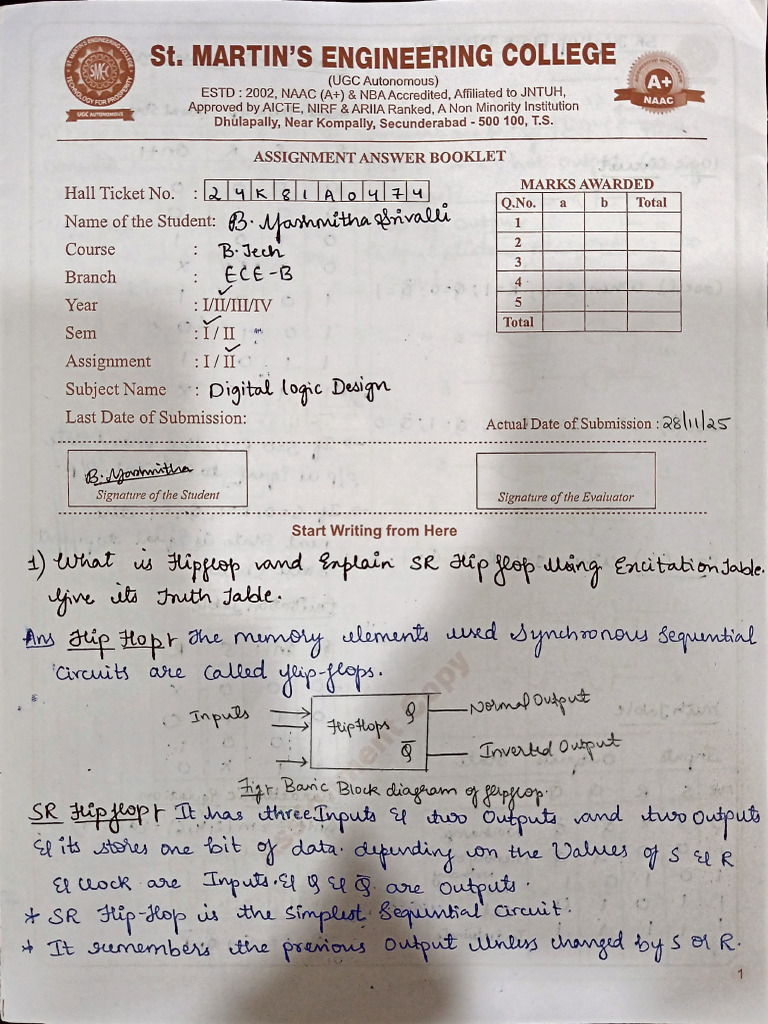 St. MARTIN'S ENGINEERING COLLEGE
(UGC Autonomous)
ESTD : 2002, NAAC (A+) & NBA Accredited, Affiliated to JNTUH,
Approved by AICTE, NIRF & ARIIA Ranked, A Non Minority Institution
Dhulapally, Near Kompally, Secunderabad - 500 100, T.S.
UGC AUTONOMOUS
A+
NAAC
ASSIGNMENT ANSWER BOOKLET
Hall Ticket No. : 24K81A0474
Name of the Student: B. Yashmitha Srivalli
Course : B.Tech
Branch : ECE-B
Year : I/II/III/IV
Sem : I / II
Assignment : I / II
Subject Name : Digital logic Design
Last Date of Submission:
MARKS AWARDED
Q.No. a b Total
1
2
3
4
5
Total
Actual Date of Submission : 28/11/25
B. Yashmitha
Signature of the Student
Signature of the Evaluator
Start Writing from Here
1) What is Flipflop and Explain SR Flip flop Using Excitation Table.
Give its Truth Table.
Ans Flip Flop:- The memory elements used Synchronous Sequential
Circuits are called flip-flops.
Inputs
FlipFlops Q
Q̅
Normal Output
Inverted Output
Fig:- Basic Block diagram of flipflop.
SR Flipflop:- It has three Inputs & two Outputs and two outputs
& its stores one bit of data. depending on the Values of S & R
& clock are Inputs. & Q & Q̅ are outputs.
* SR Flip-Flop is the Simplest Sequential Circuit.
* It remembers the previous Output Unless changed by S or R.
1